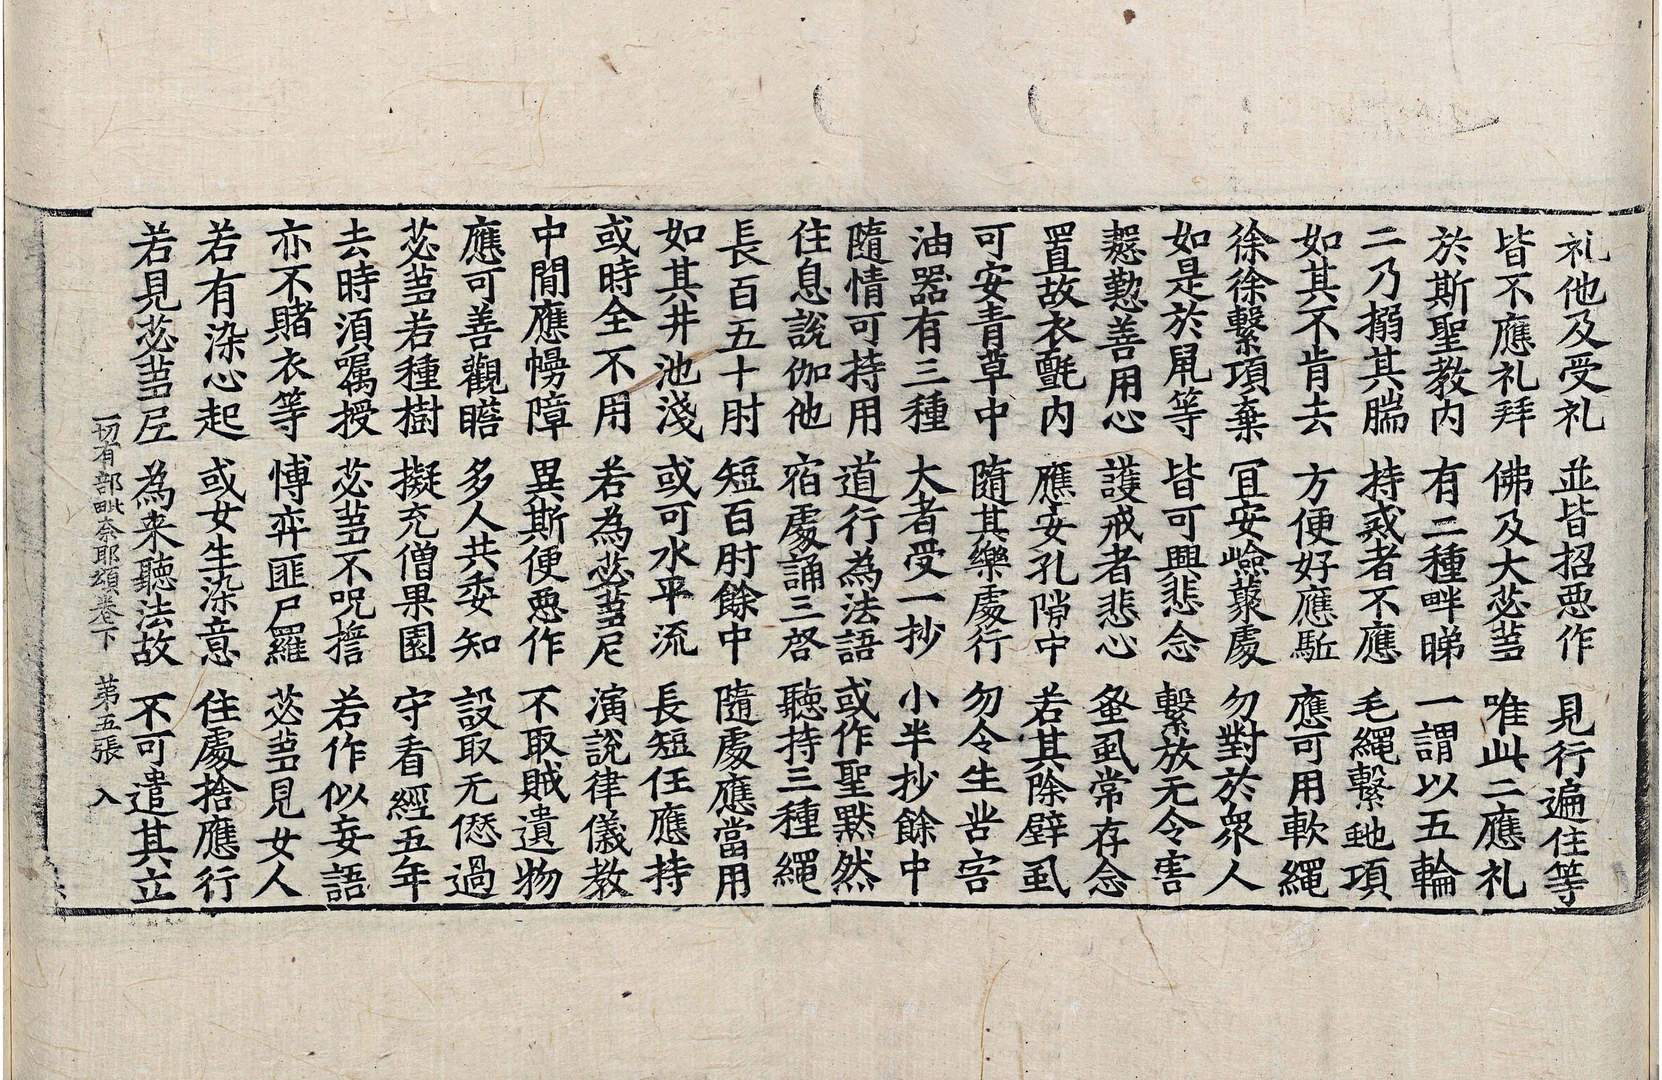 礼他及受礼　並皆招悪作　見行遍住等
皆不應礼拜　佛及大苾蒭　唯此二應礼
於斯聖教内　有二種畔睇　一謂以五輪
二乃搦其腨　持戒者不應　毛繩繫虵項
如其不肯去　方便好應駈　應可用軟繩
徐徐繫項棄　冝安嶮藂處　勿對於衆人
如是於鼠等　皆可興悲念　繫放无令害
慇懃善用心　護戒者悲心　蚤虱常存念
置故衣氎内　應安孔隙中　若其除壁虱
可安青草中　隨其樂處行　勿令生苦害
油器有三種　大者受一抄　小半抄餘中
隨情可持用　道行為法語　或作聖黙然
住息說伽他　宿處誦三啓　聽持三種繩
長百五十肘　短百肘餘中　隨處應當用
如其井池淺　或可水平流　長短任應持
或時全不用　若為苾蒭尼　演說律儀教
中間應幔障　異斯便悪作　不取賊遺物
應可善觀瞻　多人共委知　設取无愆過
苾蒭若種樹　擬充僧果園　守看經五年
去時湏囑授　苾蒭不呪擔　若作似妄語
亦不賭衣等　愽弈匪尸羅　苾蒭見女人
若有染心起　或女生染意　住處捨應行
若見苾蒭尼　為来聽法故　不可遣其立
一切有部毗奈耶頌卷下　第五張　入